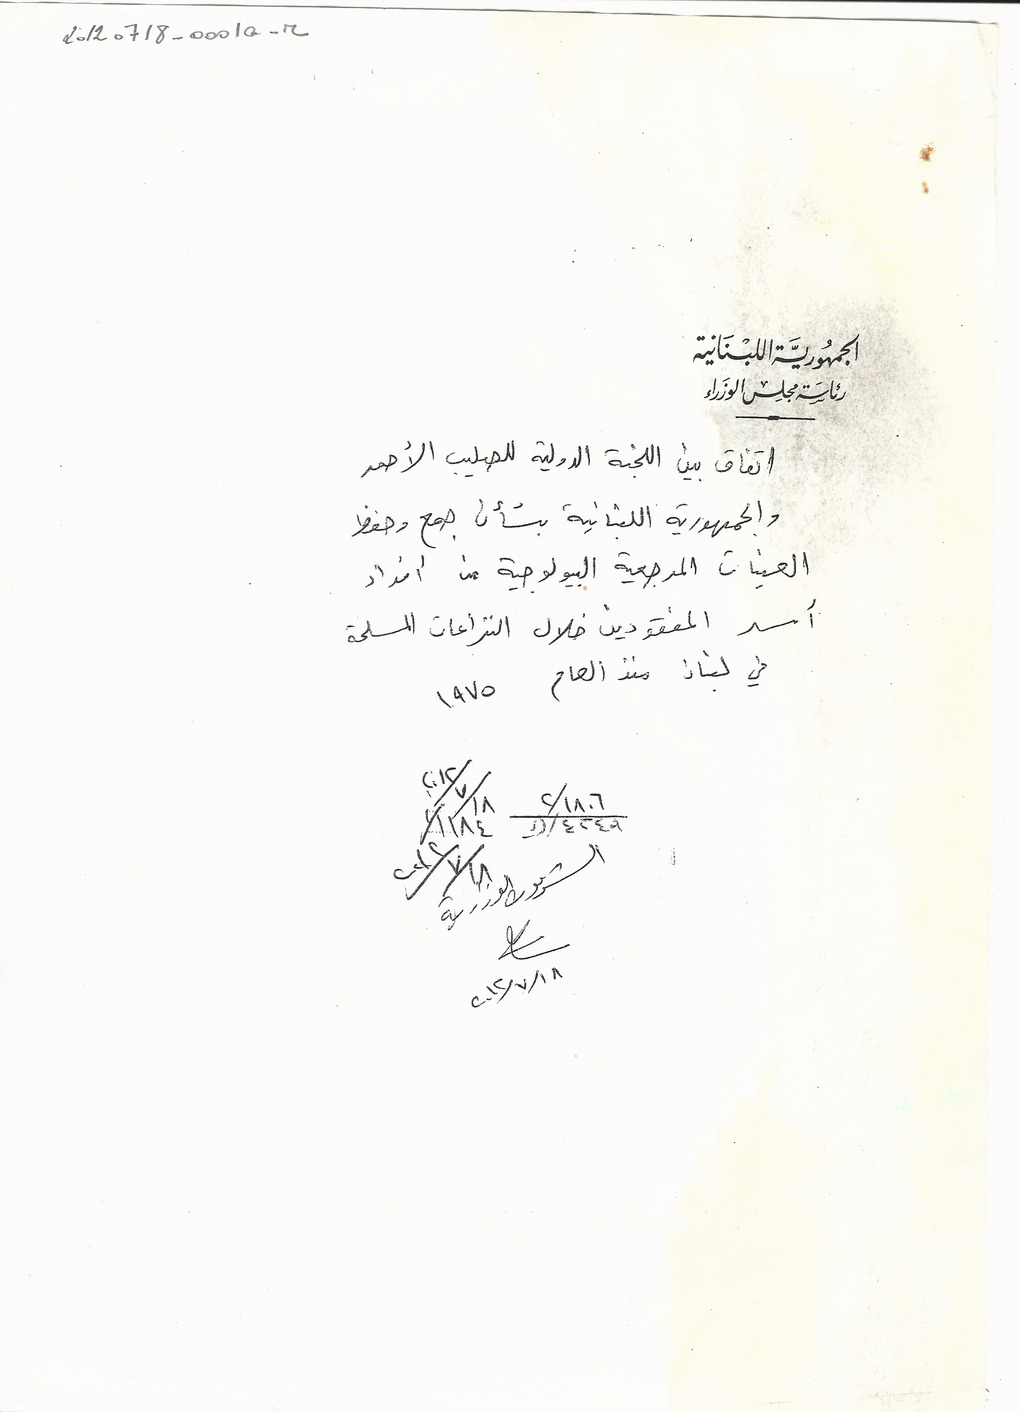 20120718-0001a-r
الجمهوريّة اللبْنَانية
رئاسَة مجلِس الوزَراء
اتفاق بين اللجنة الدولية للصليب الأحمر
والجمهورية اللبنانية بشأن جمع وحفظ
العينات المرجعية البيولوجية من افراد
أسر المفقودين خلال النزاعات المسلحة
في لبنان منذ العام ١٩٧٥
٢٠١٢/٧/١٨
٢/١٨٠٦
١١٨٤
٢٠١٢/٧/١٨
الشؤون الوزارية
٢٠١٢/٧/١٨